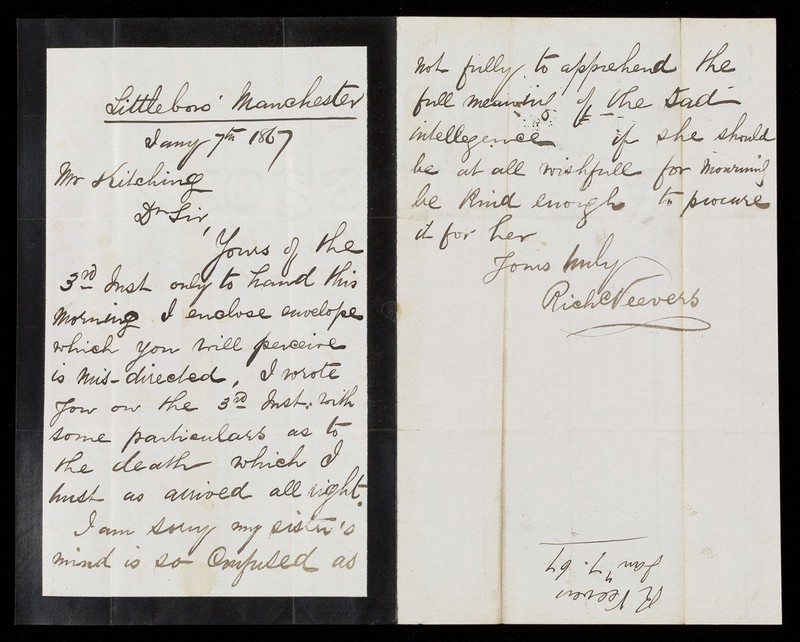 Littleboro' Manchester
Jany 7th 1867
Mr Kitching
Dr Sir,
Yours of the
3rd Inst only to hand this
morning I enclose envelope
which you will perceive
is mis-directed, I wrote
you on the 3rd Inst: with
some particulars as to
the death which I
trust as arrived all right.
I am sorry my sister's
mind is so Confused as
not fully to apprehend the
full meaning of the sad
intellegence if she should
be at all wishfull for mourning
be kind enough to procure
it for her
Yours truly
Richd Neevers
R Neevers
Jany 7. 67